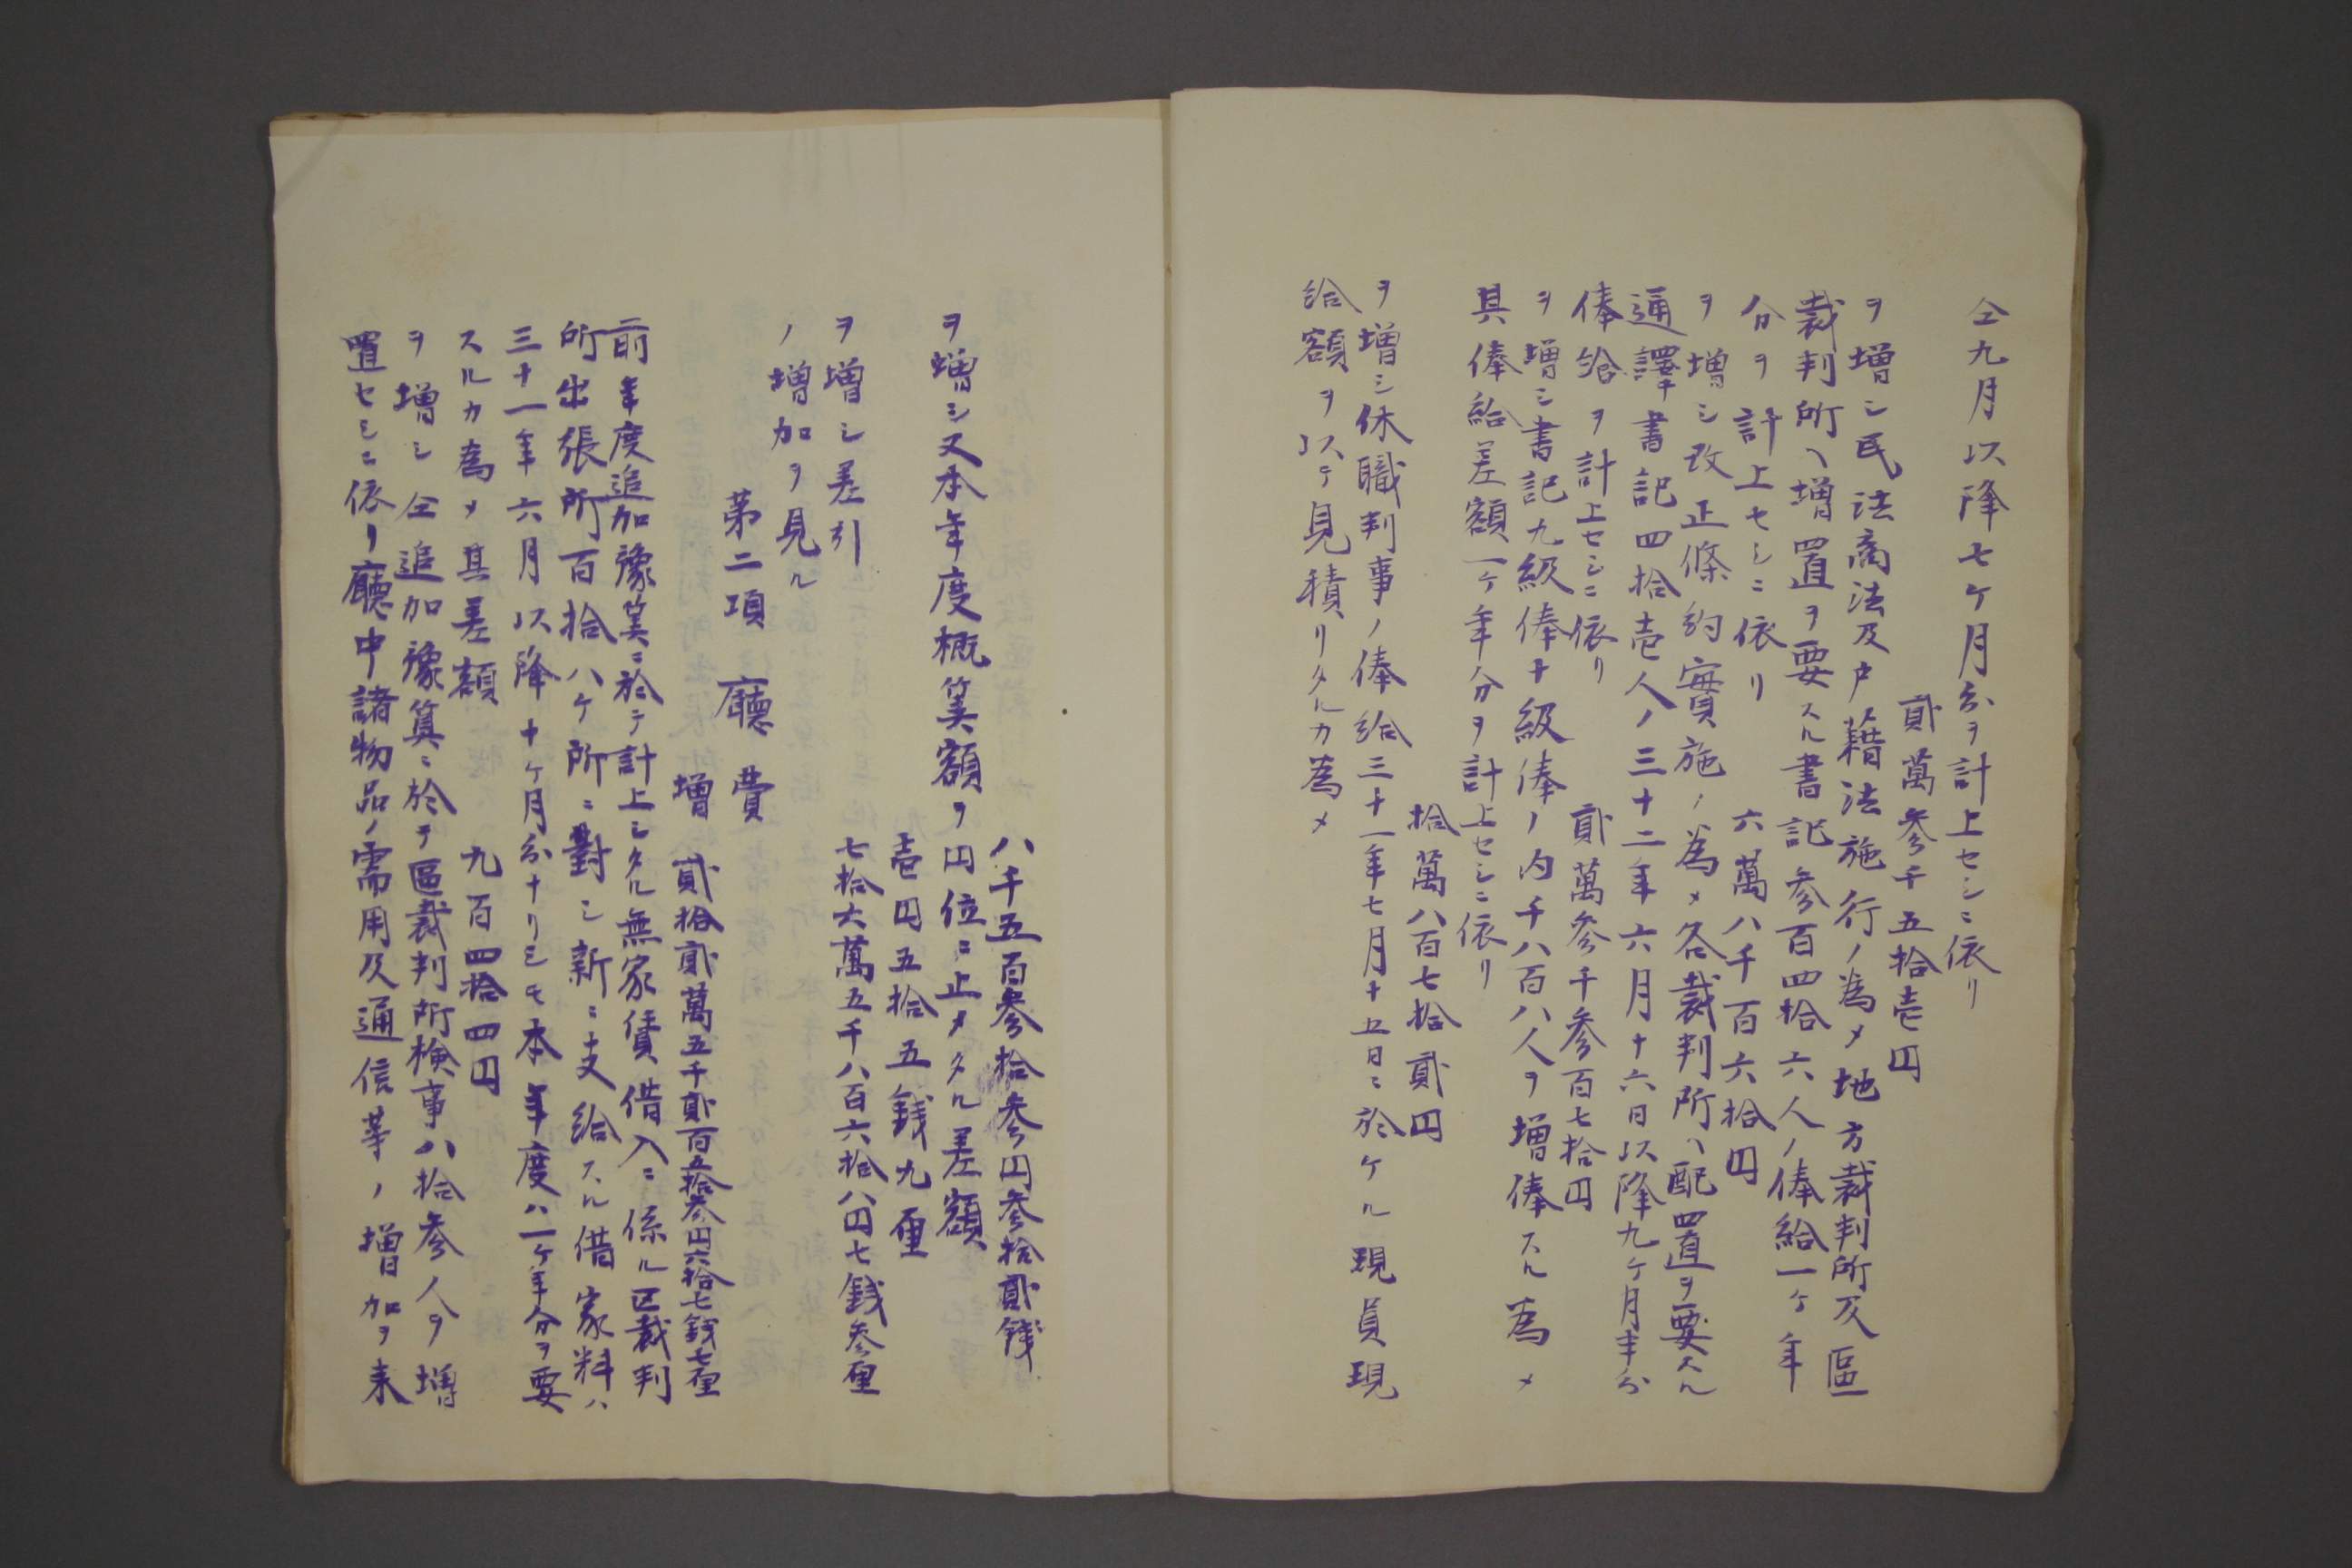 仝九月以降七ケ月分ヲ計上セシニ依リ
貳萬参千五拾壱円
ヲ増シ民法商法及戸籍法施行ノ為メ地方裁判所及區
裁判所ヘ増置ヲ要スル書記参百四拾六人ノ俸給一ケ年
分ヲ計上セシニ依リ
六萬八千百六拾円
ヲ増シ改正條約實施ノ為メ各裁判所ヘ配置ヲ要スル
通譯書記四拾壱人ノ三十二年六月十六日以降九ケ月半分
俸給ヲ計上セシニ依リ
貳萬参千参百七拾円
ヲ増シ書記九級俸十級俸ノ内千八百八人ヲ増俸スル為メ
其俸給差額一ケ年分ヲ計上セシニ依リ
拾萬八百七拾貳円
ヲ増シ休職判事ノ俸給三十一年七月十五日ニ於ケル現員現
給額ヲ以テ見積リタルカ為メ
八千五百参拾参円参拾貳錢
ヲ増シ又本年度概算額ヲ円位ニ止メタル差額
壱円五拾五銭九厘
ヲ増シ差引
七拾六萬五千八百六拾八円七銭参厘
ノ増加ヲ見ル
第二項 廳費
増 貳拾貳萬五千貳百五拾参円六拾七銭七厘
前年度追加豫算ニ於テ計上シタル無家賃借入ニ係ル区裁判
所出張所百拾八ケ所ニ對シ新ニ支給スル借家料ハ
三十一年六月以降十ケ月分ナリシモ本年度ハ一ケ年分ヲ要
スルカ為メ其差額
九百四拾四円
ヲ増シ仝追加豫算ニ於テ區裁判所検事八拾参人ヲ増
置セシニ依リ廳中諸物品ノ需用及通信等ノ増加ヲ来